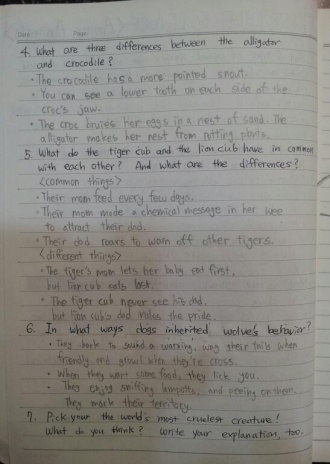 Date Page
4. What are three differences between the alligator
and crocodile?
· The crocodile has a more pointed snout.
· You can see a lower tooth on each side of the
croc's jaw.
· The croc bruies her eggs in a nest of sand. The
alligator makes her nest from rotting plants.
5. What do the tiger cub and the lion cub have in common
with each other? And what are the differences?
<common things>
· Their mom feed every few days.
· Their mom made a chemical message in her wee
to attract their dad.
· Their dad roars to warn off other tigers.
<different things>
· The tiger's mom lets her baby eat first,
but lion cub eats last.
· The tiger cub never see his dad,
but lion cub's dad rules the pride.
6. In what ways dogs inherited wolve's behavior?
· They bark to sound a warning, wag their tails when
friendly and growl when they're cross.
· When they want some food, they lick you.
· They enjoy sniffing lampposts, and peeing on them.
They mark their territory.
7. Pick your the world's most cruelest creature!
What do you think? Write your explanation, too.